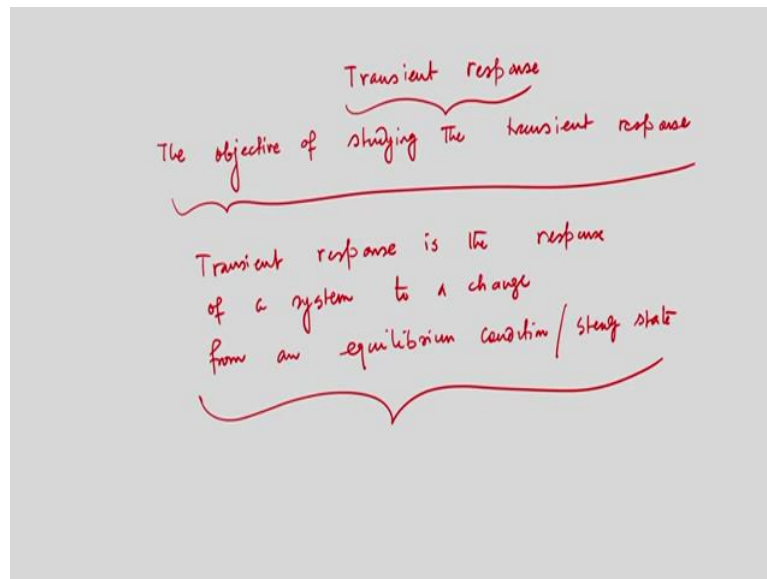 Transient response
The objective of studying the transient response
Transient response is the response
of a system to a change
from an equilibrium condition / steady state